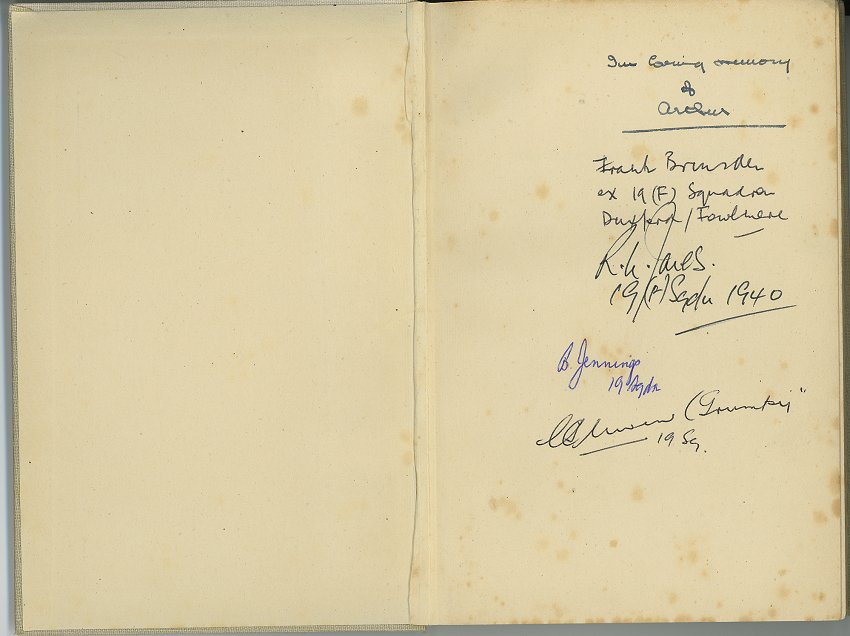 In loving memory
of
Arthur
Frank Brinsden
ex 19 (F) Squadron
Duxford / Fowlmere
19 (F) Sqdn 1940
B. Jennings
19 Sqdn
Unwin (Grumpy"
19 Sq.